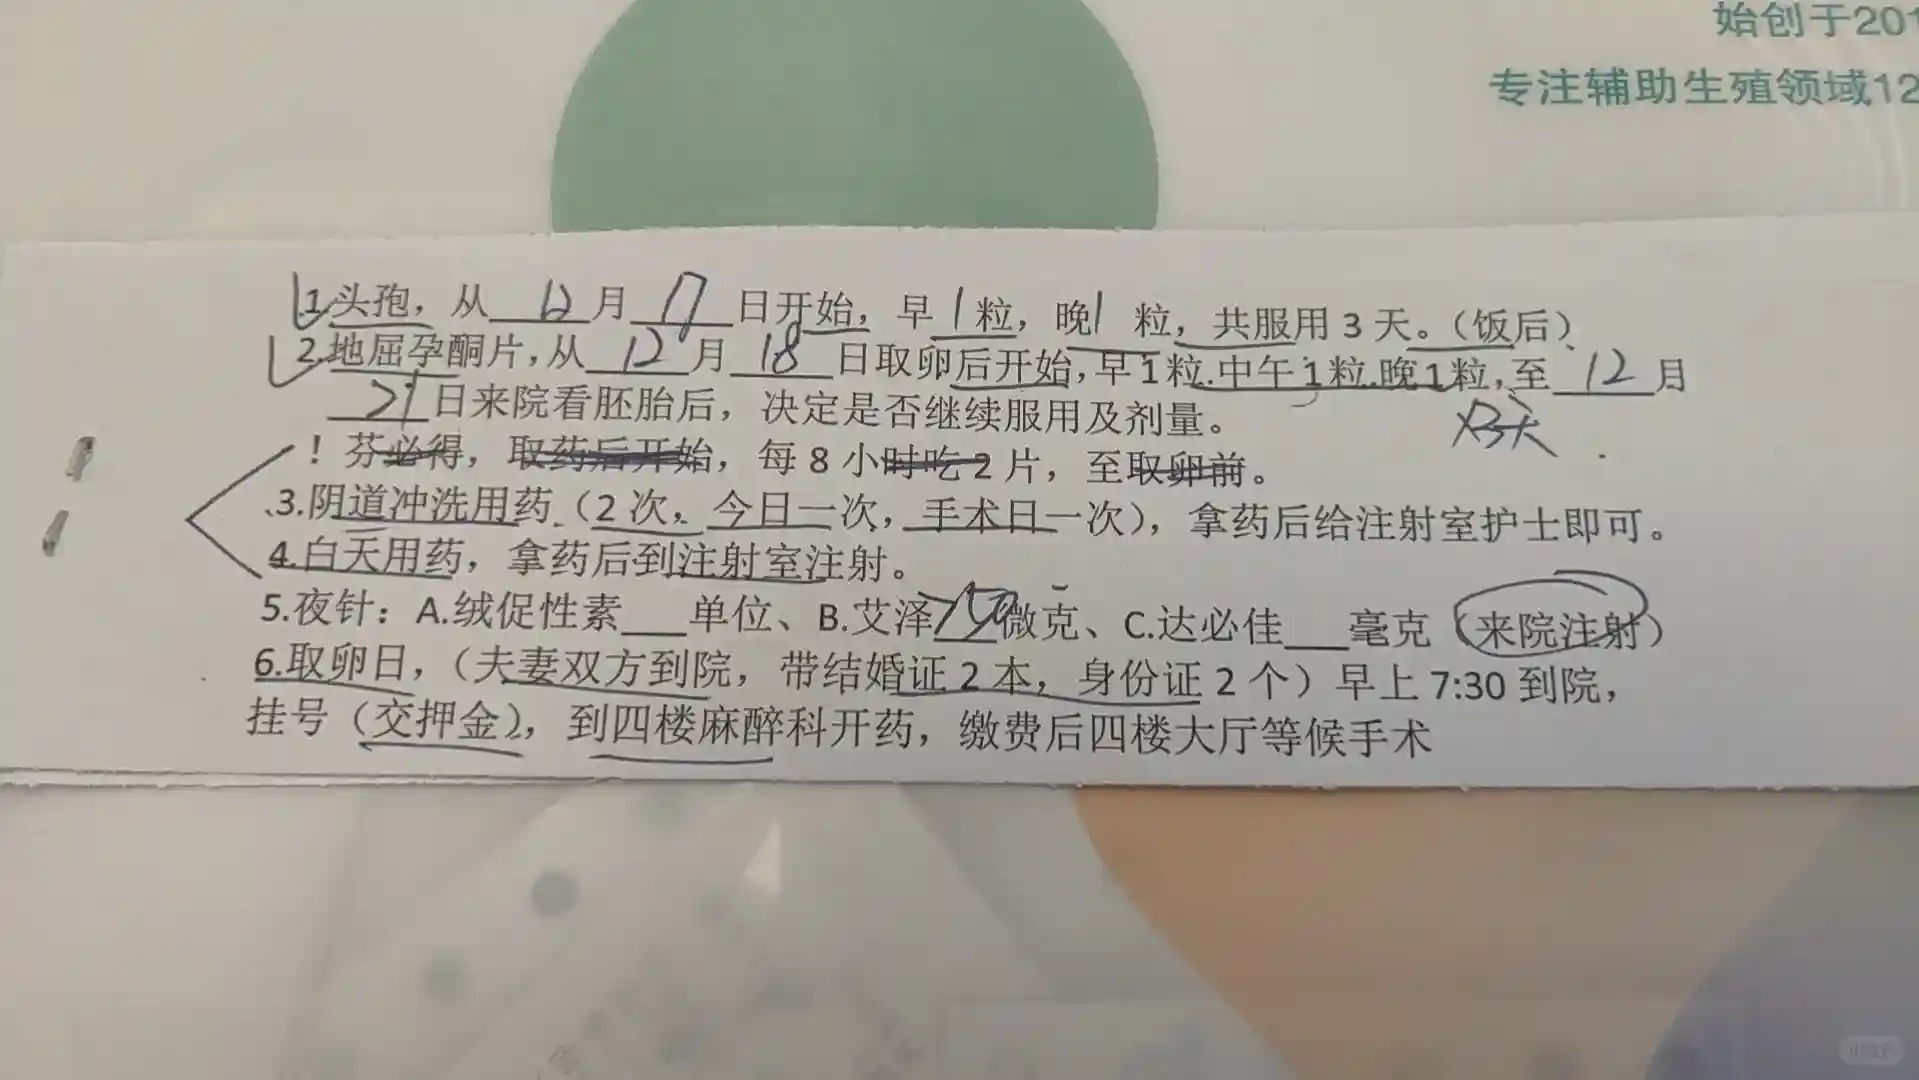 始创于201
专注辅助生殖领域12
1.头孢，从 12 月 17 日开始，早 1 粒，晚 1 粒，共服用 3 天。（饭后）
2.地屈孕酮片，从 12 月 18 日取卵后开始，早1粒.中午1粒.晚1粒，至 12 月
21 日来院看胚胎后，决定是否继续服用及剂量。
！芬必得，取药后开始，每 8 小时吃 2 片，至取卵前。
、3.阴道冲洗用药（2 次，今日一次，手术日一次），拿药后给注射室护士即可。
4.白天用药，拿药后到注射室注射。
5.夜针：A.绒促性素___单位、B.艾泽 750 微克、C.达必佳___毫克（来院注射）
6.取卵日，（夫妻双方到院，带结婚证 2 本，身份证 2 个）早上 7:30 到院，
挂号（交押金），到四楼麻醉科开药，缴费后四楼大厅等候手术